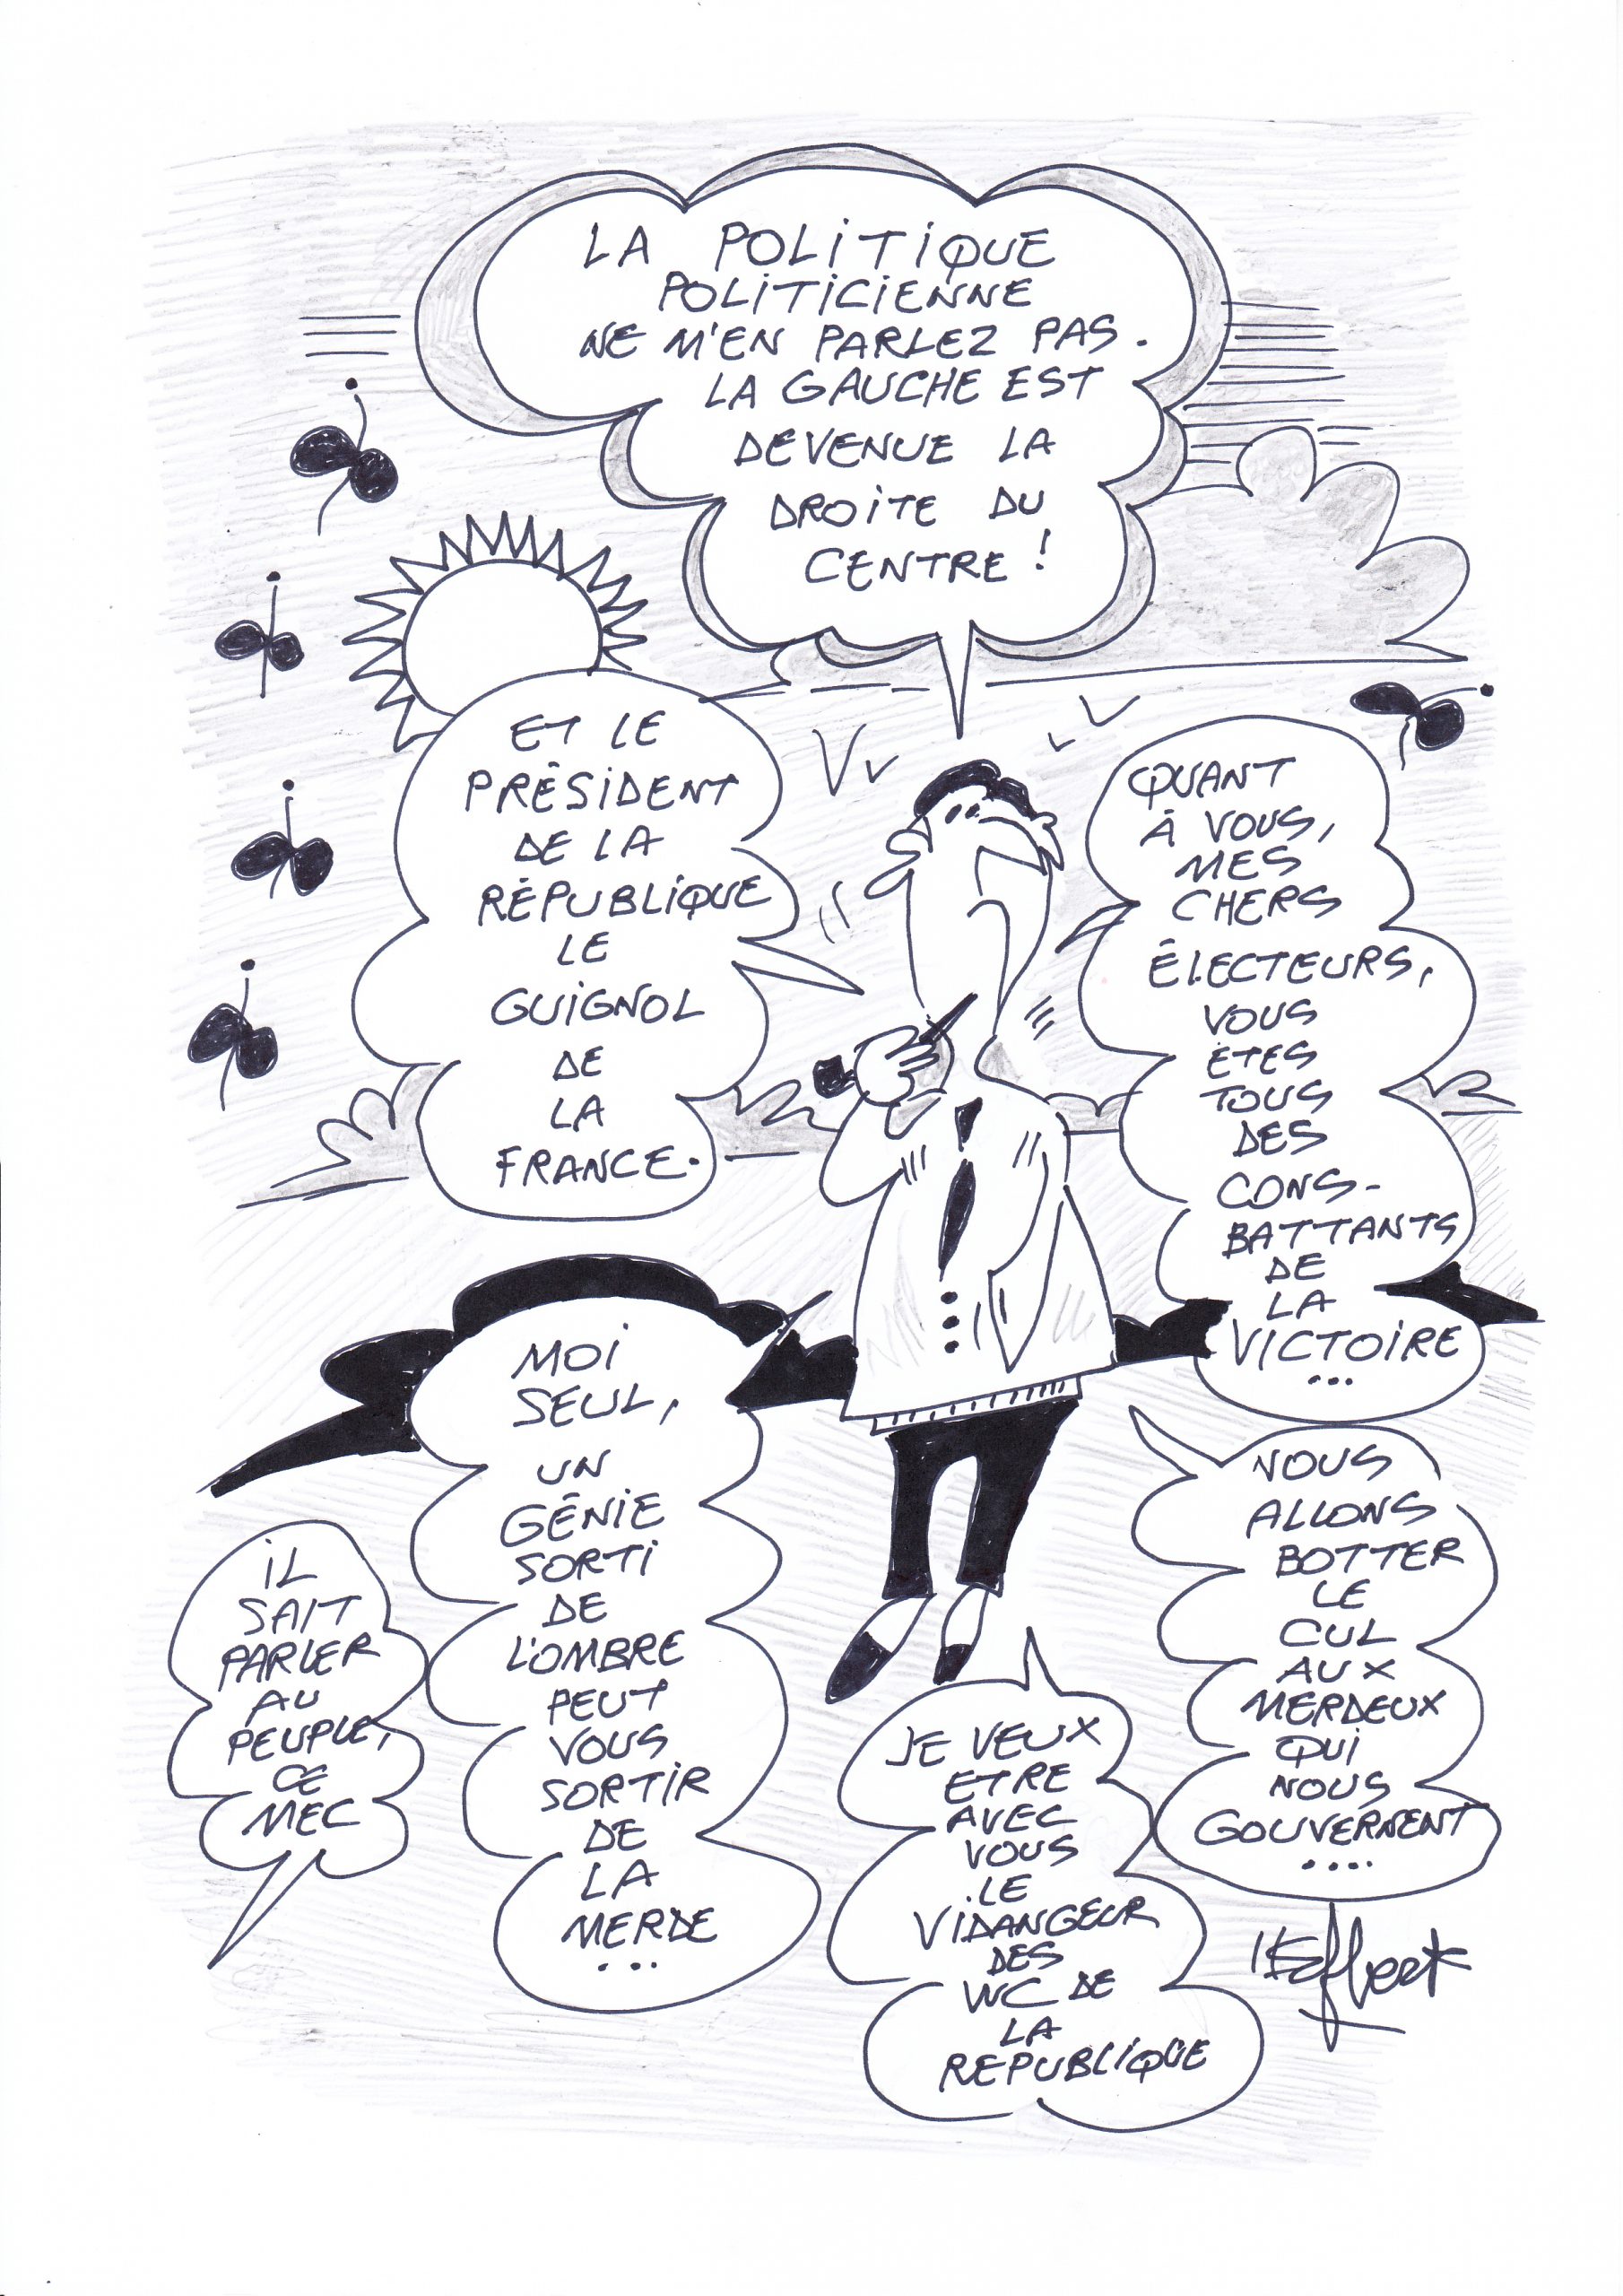 LA POLITIQUE
POLITICIENNE
NE M'EN PARLEZ PAS.
LA GAUCHE EST
DEVENUE LA
DROITE DU
CENTRE !
ET LE
PRÉSIDENT
DE LA
RÉPUBLIQUE
LE
GUIGNOL
DE
LA
FRANCE.
QUANT
À VOUS,
MES
CHERS
ÉLECTEURS,
VOUS
ÊTES
TOUS
DES
CONS-
BATTANTS
DE
LA
VICTOIRE
...
MOI
SEUL,
UN
GÉNIE
SORTI
DE
L'OMBRE
PEUT
VOUS
SORTIR
DE
LA
MERDE
...
NOUS
ALLONS
BOTTER
LE
CUL
AUX
MERDEUX
QUI
NOUS
GOUVERNENT
....
IL
SAIT
PARLER
AU
PEUPLE,
CE
MEC
JE VEUX
ETRE
AVEC
VOUS
LE
VIDANGEUR
DES
WC DE
LA
REPUBLIQUE